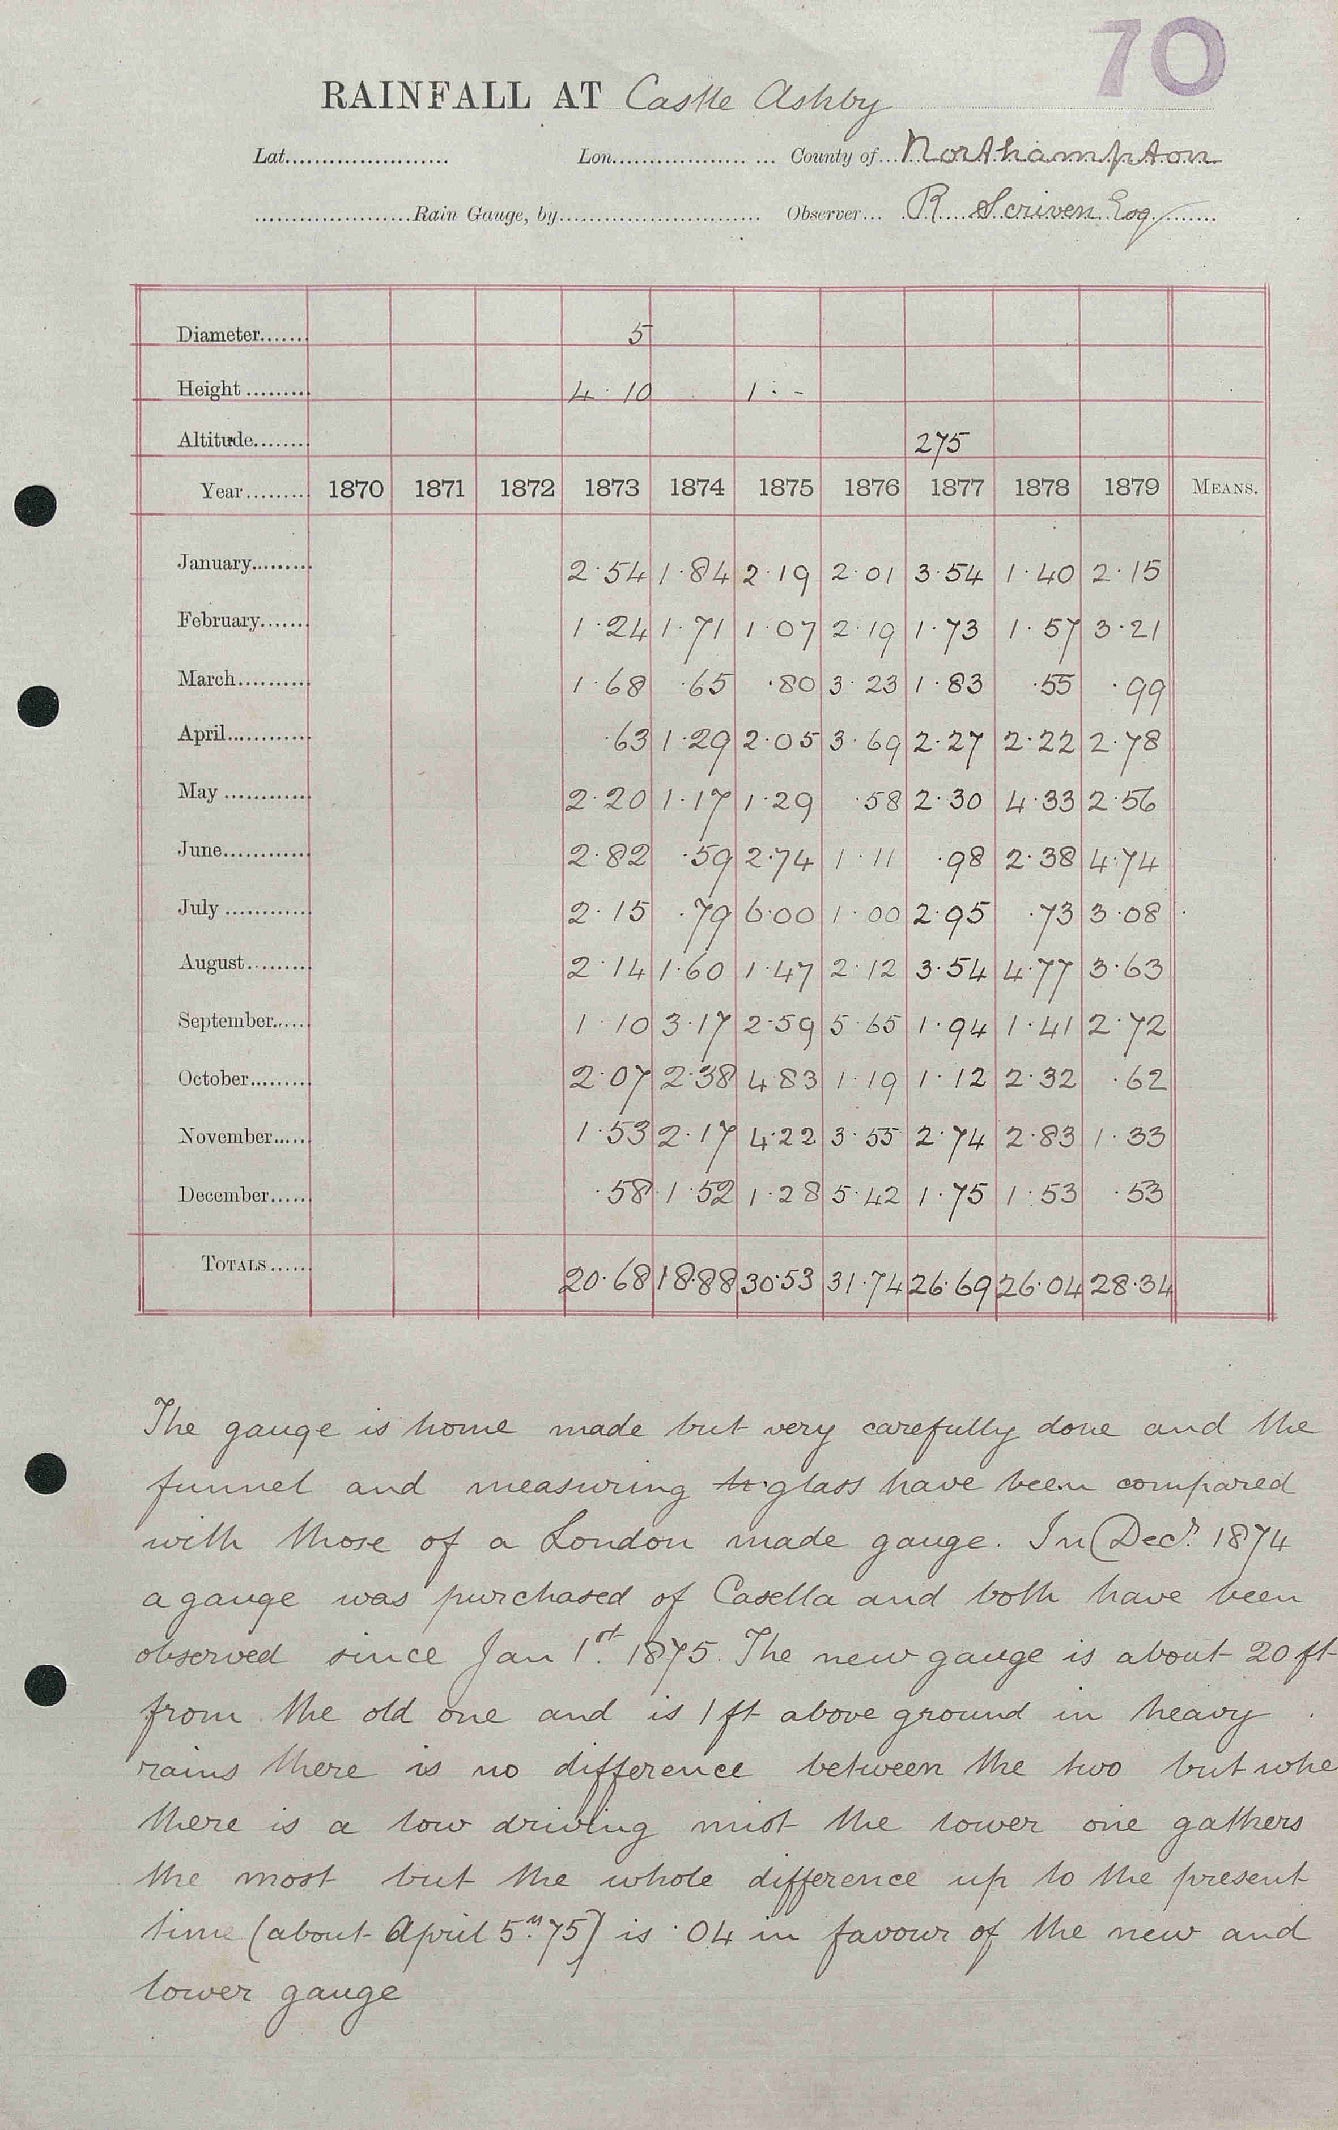 70
RAINFALL AT Castle Ashby
Lat...................... Lon.................. ... County of... Northampton
......................Rain Gauge, by............................ Observer... R Scriven Esq
Diameter....... 5
Height ......... 4 · 10 1 · -
Altitude........ 275
Year......... 1870 1871 1872 1873 1874 1875 1876 1877 1878 1879 MEANS.
January......... 2·54 1·84 2·19 2·01 3·54 1·40 2·15
February....... 1·24 1·71 1·07 2·19 1·73 1·57 3·21
March.......... 1·68 ·65 ·80 3·23 1·83 ·55 ·99
April............ ·63 1·29 2·05 3·69 2·27 2·22 2·78
May ............ 2·20 1·17 1·29 ·58 2·30 4·33 2·56
June............ 2·82 ·59 2·74 1·11 ·98 2·38 4·74
July ............ 2·15 ·79 6·00 1·00 2·95 ·73 3·08
August......... 2·14 1·60 1·47 2·12 3·54 4·77 3·63
September..... 1·10 3·17 2·59 5·65 1·94 1·41 2·72
October........ 2·07 2·38 4·83 1·19 1·12 2·32 ·62
November..... 1·53 2·17 4·22 3·55 2·74 2·83 1·33
December...... ·58 1·52 1·28 5·42 1·75 1·53 ·53
TOTALS...... 20·68 18·88 30·53 31·74 26·69 26·04 28·34
The gauge is home made but very carefully done and the
funnel and measuring glass have been compared
with those of a London made gauge. In Decr. 1874
a gauge was purchased of Casella and both have been
observed since Jan 1st. 1875. The new gauge is about 20 ft
from the old one and is 1 ft above ground in heavy
rains there is no difference between the two but whe
there is a low driving mist the lower one gathers
the most but the whole difference up to the present
time (about April 5th 75) is ·04 in favour of the new and
lower gauge